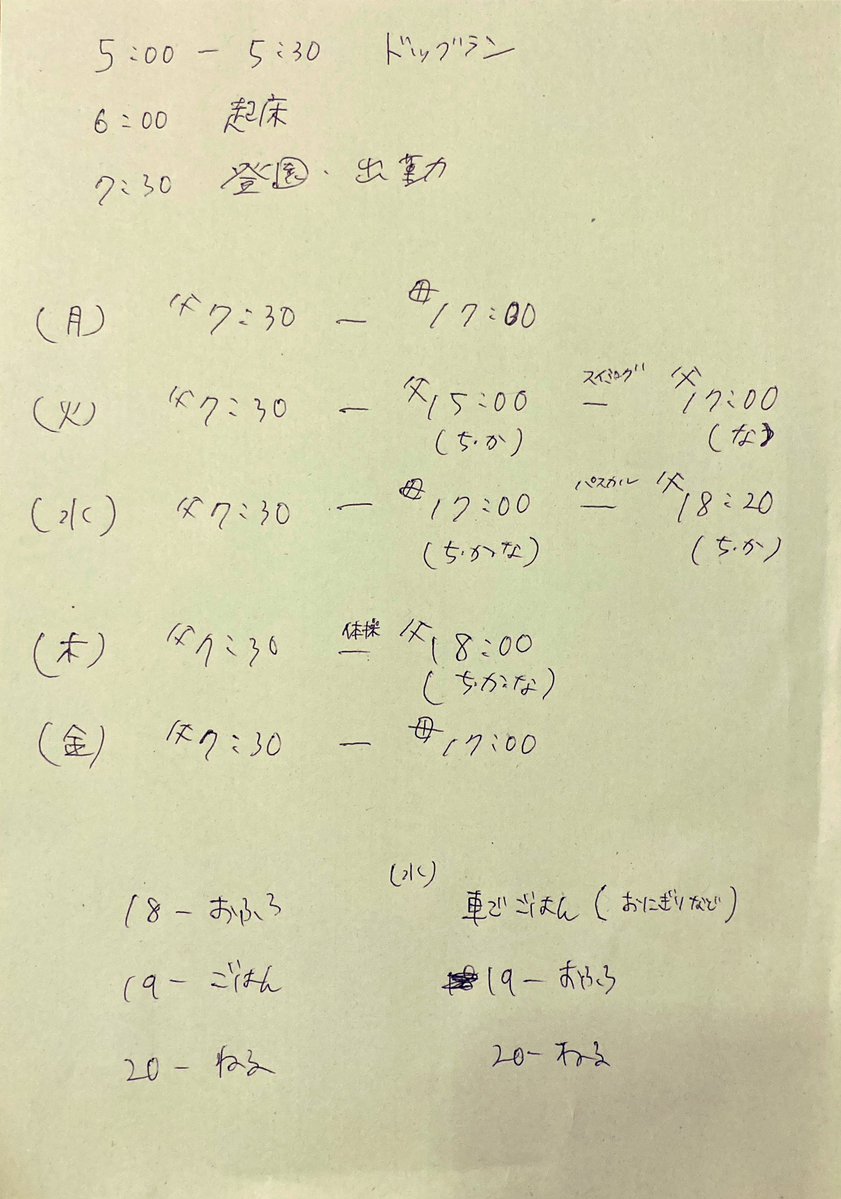 5:00 − 5:30 ドッグラン
6:00 起床
7:30 登園・出勤
(月) 父7:30 − 母17:00
(火) 父7:30 − 父15:00 スイミング − 父17:00
(ち・か) (な)
(水) 父7:30 − 母17:00 パスカル − 父18:20
(ち・か・な) (ち・か)
(木) 父7:30 体操 − 父18:00
(ち・か・な)
(金) 父7:30 − 母17:00
(水)
18 − おふろ 車でごはん (おにぎりなど)
19 − ごはん 19 − おふろ
20 − ねる 20 − ねる